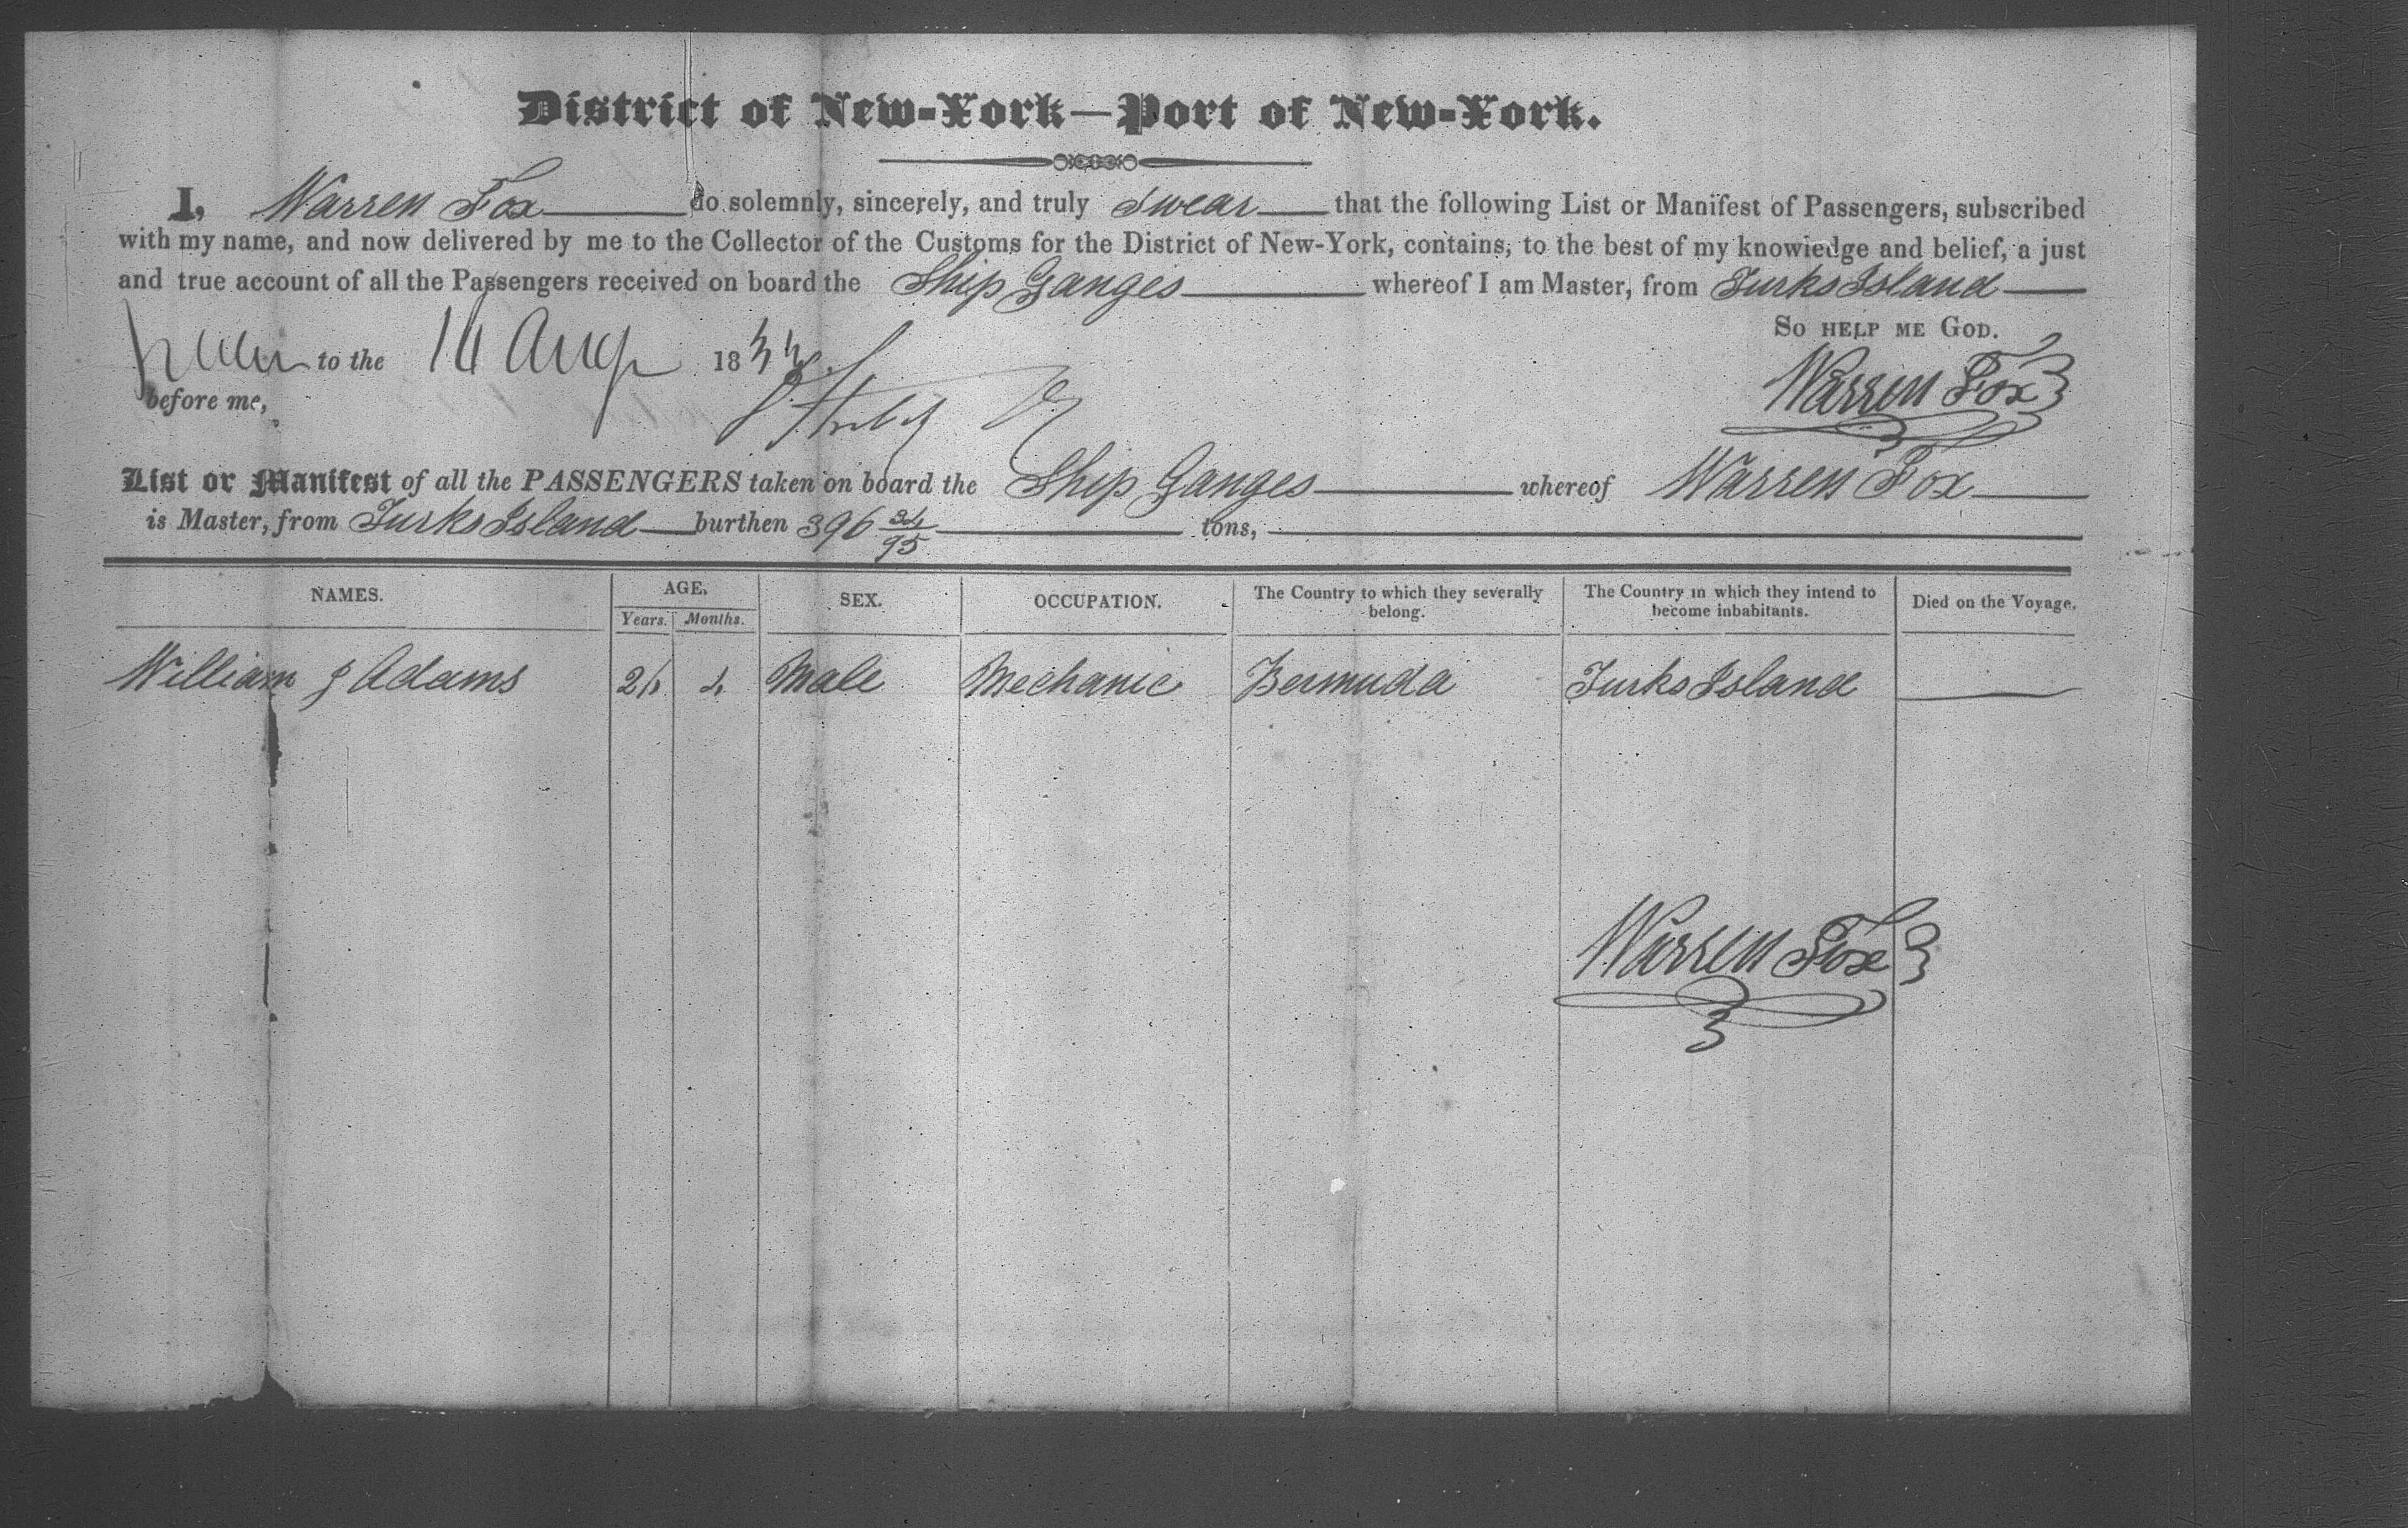 District of New-York—Port of New-York.
I, Warren Fox do solemnly, sincerely, and truly swear that the following List or Manifest of Passengers, subscribed
with my name, and now delivered by me to the Collector of the Customs for the District of New-York, contains, to the best of my knowledge and belief, a just
and true account of all the Passengers received on board the Ship Ganges whereof I am Master, from Turks Island
So help me God.
to the Aug 183
before me,
Warren Fox
List or Manifest of all the PASSENGERS taken on board the Ship Ganges whereof Warren Fox
is Master, from Turks Island burthen 396 tons,
NAMES. AGE. SEX. OCCUPATION. The Country to which they severally belong. The Country in which they intend to become inhabitants. Died on the Voyage.
Years. Months.
William J Adams Male Mechanic Bermuda Turks Island
Warren Fox